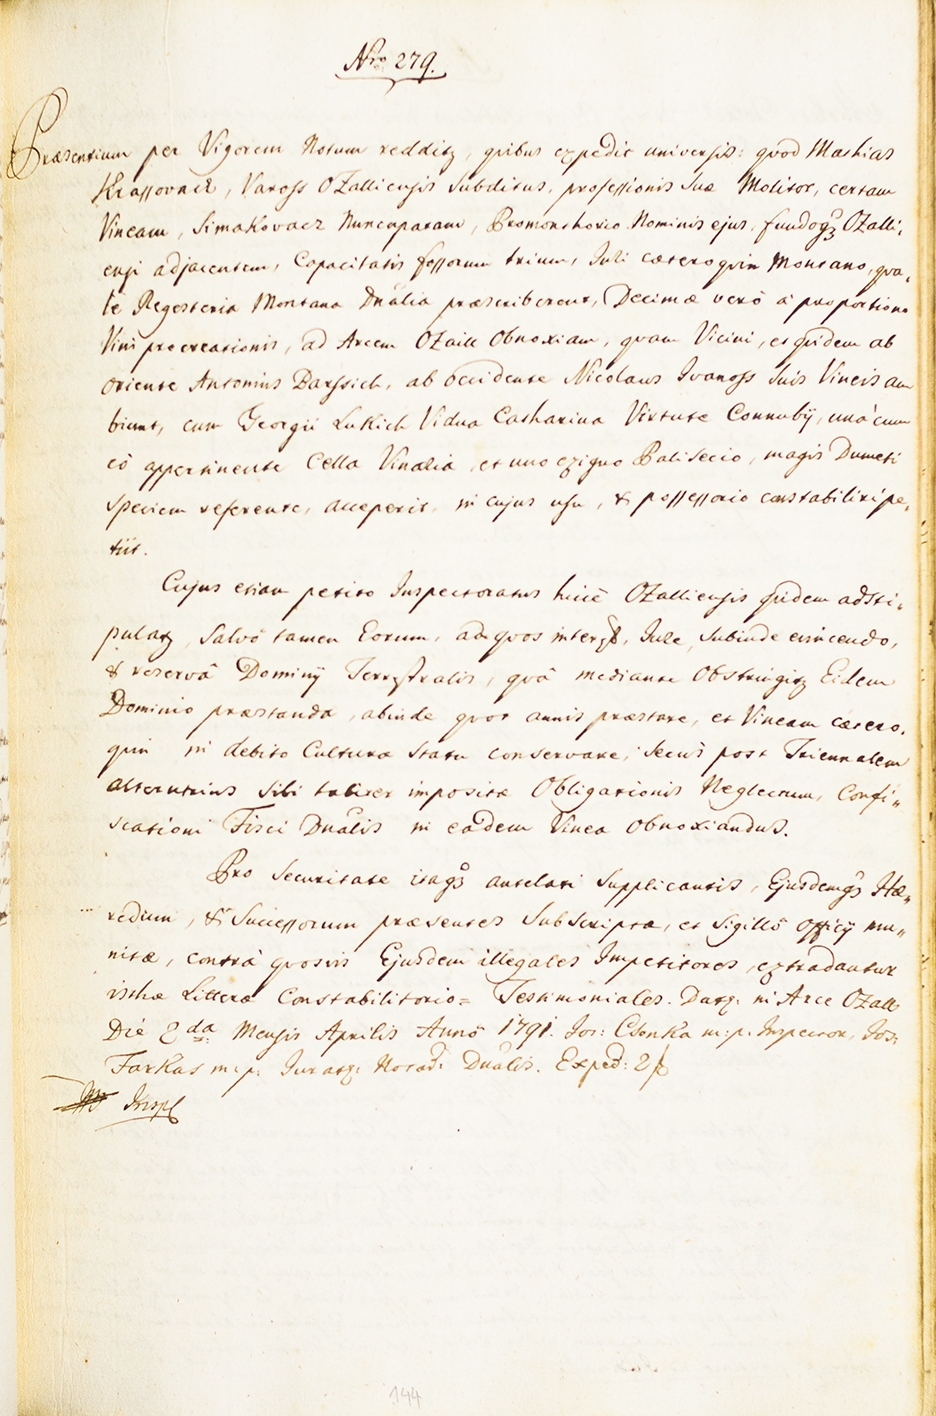 Nro 279.
Præsentium per Vigorem Notum redditq, quibus expedit universis: quod Mathias
Krassovacz, Vaross Ozalliensis Subditus, professionis suæ Molitor, certam
Vineam, Simakovacz Nuncupatam, Promonthorio Nominis ejus, fundoq3 Ozalli,
ensi adjacentem, Capacitatis fossorum trium, Juri cæteroquin Montano, qua,
le Regesteria Montana Dnalia præscriberent, Decimæ verò à proportione
Vini procreationis, ad Arcem Ozaill Obnoxiam, quam Vicini, et quidem ab
oriente Antonius Darssich, ab occidente Nicolaus Ivanoss suis Vineis am
biunt, cum Georgii Lukich Vidua Catharina Virtute Connubÿ, unà cum
eò appertinente Cella Vinalia, et uno exiguo Palisecio, magis Dumeti
speciem referente, acceperit, in cujus usu, & possessorio constabiliri pe,
tiit.
Cujus etiam petito Inspectoratus hicce Ozalliensis quidem adsti,
pulatq, Salvô tamen Eorum, ad quos interest, Jure, subinde evincendo,
& reservâ Dominÿ Terrestralis, quâ mediante Obstringitq Eidem
Dominio præstanda, abinde quot annis præstare, et Vineam cætero,
quin in debito Culturæ statu conservare, secus post Triennalem
alterutrius sibi taliter impositæ Obligationis Neglectum, Confi„
scationi Fisci Dnalis in eadem Vinea Obnoxiandus.
Pro securitate itaq3 antelati Supplicantis, Ejusdemq3 Hæ„
redum, & Successorum præsentes Subscriptæ, et Sigillô officÿ mu„
nitæ, contrà quosvis Ejusdem illegales Impetitores, extradantur
isthæ Litteræ Constabilitorio= Testimoniales. Datq: in Arce Ozall
Die 2da Mensis Aprilis Annô 1791. Jos: Csonka m:p: Inspector, Jos:
Farkas m:p: Juratq: Notar: Dnalis. Exped: 2f
Inspl
144